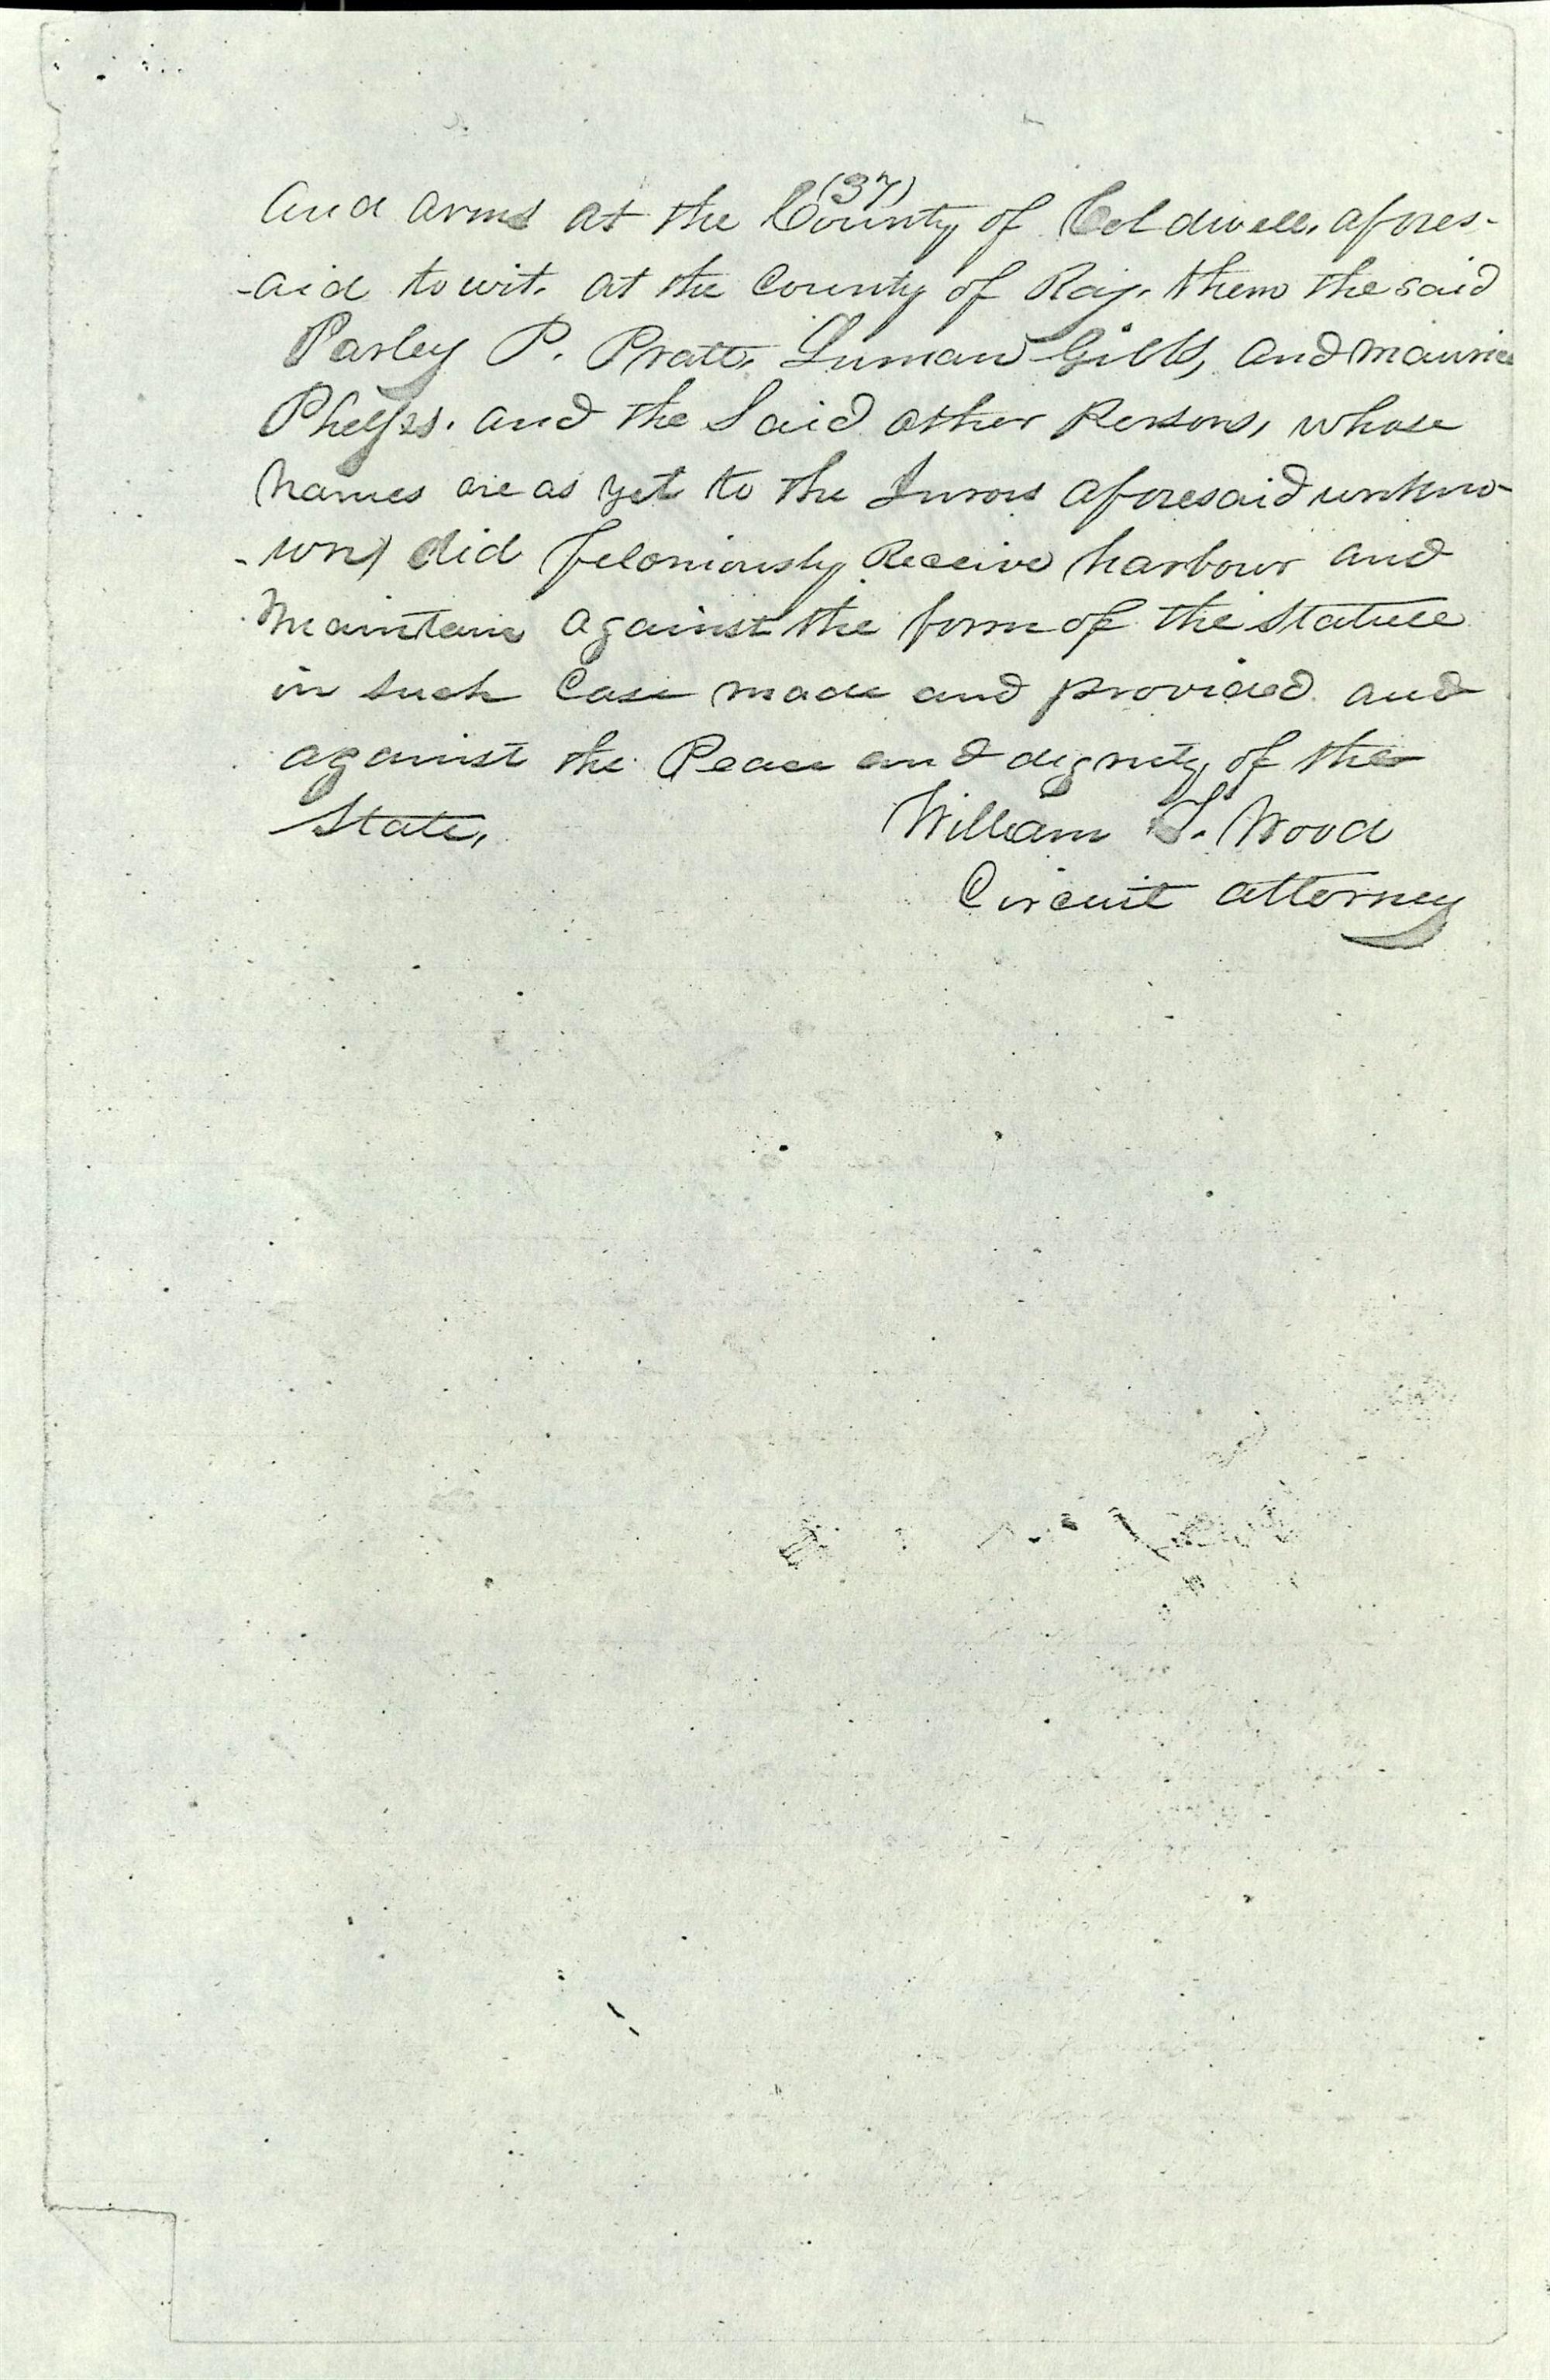 (37)
And arms at the County of Coldwell, afores-
-aid to wit. at the County of Ray. them the said
Parley P. Pratt, Luman Gibbs, and Maurice
Phelps. and the Said other Persons, whose
names are as yet to the Jurors aforesaid unkno-
-wn) did feloniously Receive harbour and
maintain against the form of the Statute
in such Case made and provided and
against the Peace and dignity of the
State,
William T. Wood
Circuit attorney